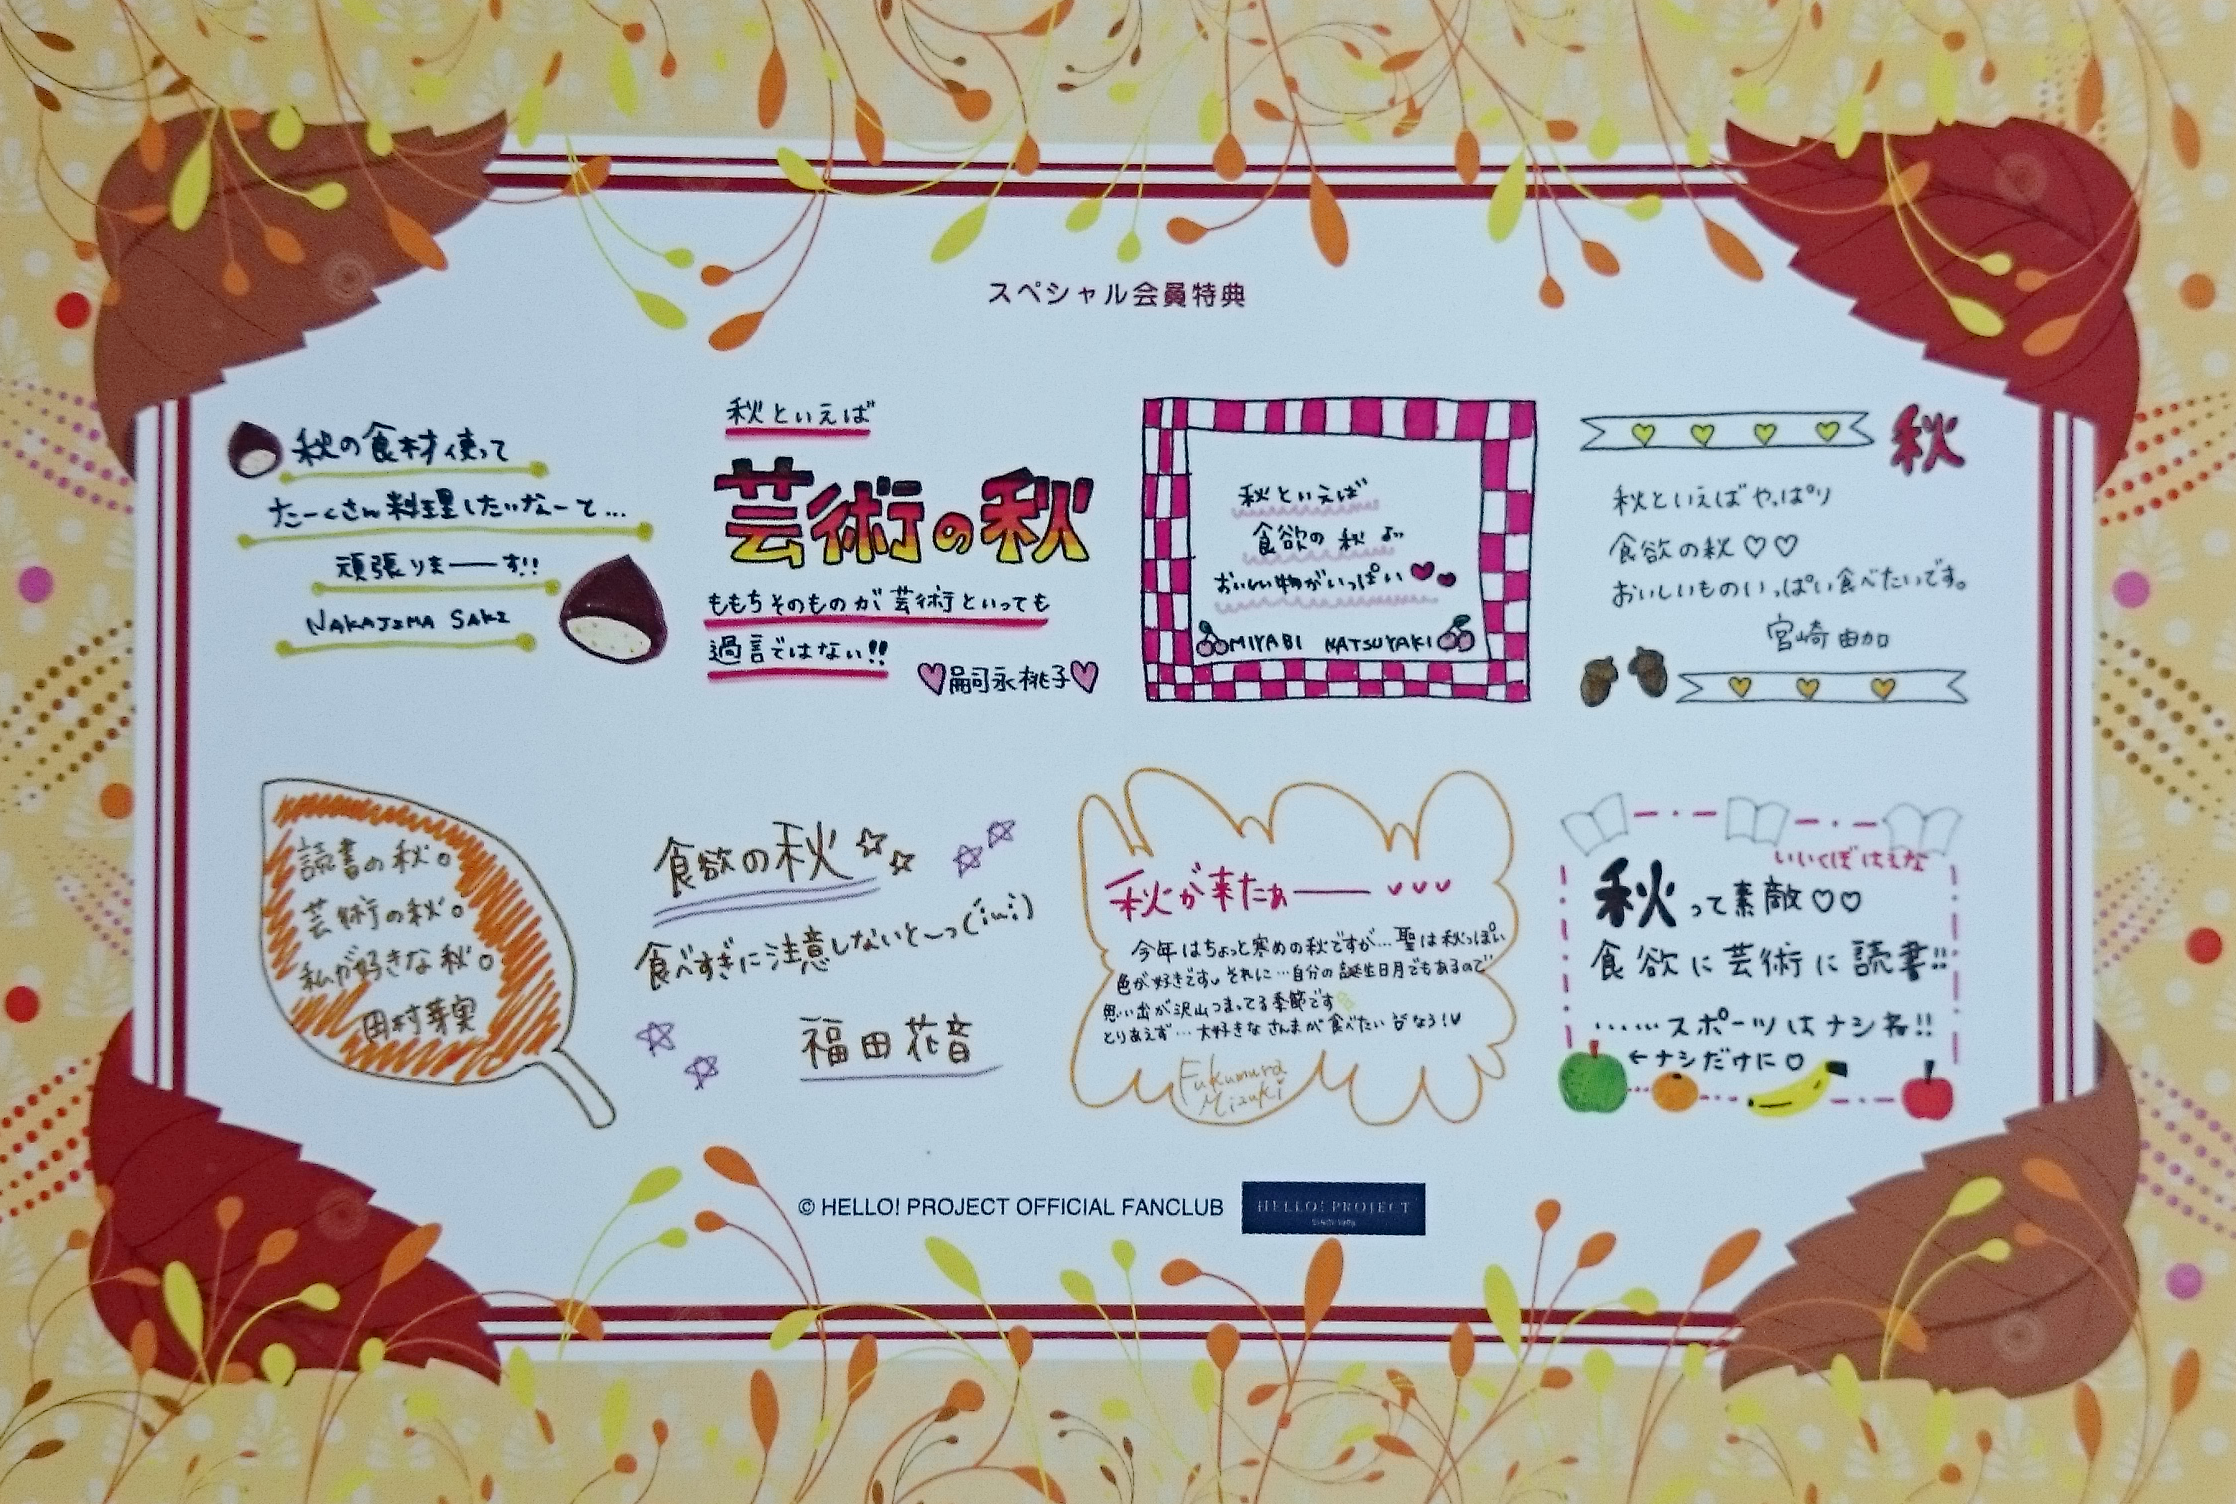 スペシャル会員特典
秋の食材使って
たーくさん料理したいなーと…
頑張りまーーす!!
NAKAJIMA SAKI
秋といえば
芸術の秋
ももちそのものが芸術といっても
過言ではない!!
嗣永桃子
秋といえば
食欲の秋
おいしい物がいっぱい
MIYABI NATSUYAKI
秋
秋といえばやっぱり
食欲の秋♡♡
おいしいものいっぱい食べたいです。
宮崎由加
読書の秋。
芸術の秋。
私が好きな秋。
田村芽実
食欲の秋☆☆
食べすぎに注意しないとーっ(;ω;)
福田花音
秋が来たぁーー♥♥♥
今年はちょっと寒めの秋ですが…聖は秋っぽい
色が好きです。それに…自分の誕生日月でもあるので
思い出が沢山つまってる季節です
とりあえず…大好きなさんまが食べたい なう!♥
Fukumura
Mizuki
いいくぼはるな
秋って素敵♡♡
食欲に芸術に読書!!
……スポーツはナシね!!
←ナシだけに♡
© HELLO! PROJECT OFFICIAL FANCLUB
HELLO! PROJECT
SINCE 1998